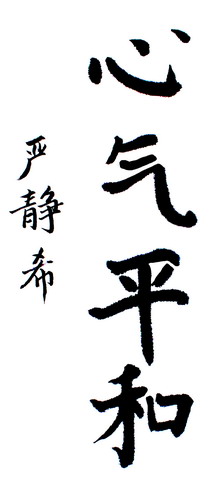 心气平和
严静希